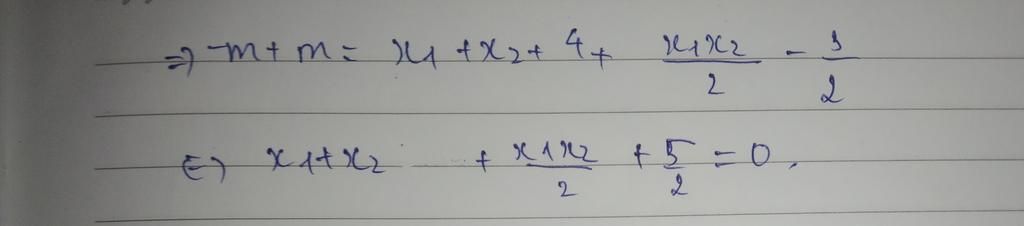 ⇒ -m + m = x1 + x2 + 4 + x1x2/2 - 3/2
⇔ x1 + x2 + x1x2/2 + 5/2 = 0.